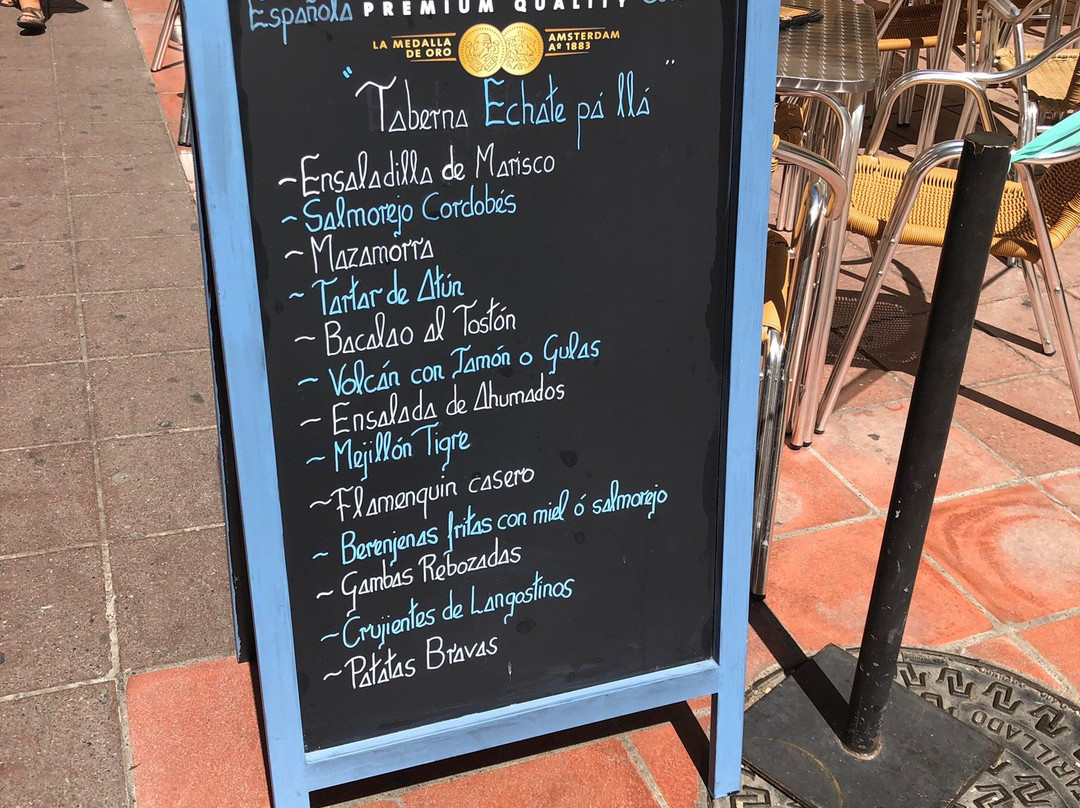 Española
PREMIUM QUALITY
LA MEDALLA DE ORO
AMSTERDAM Aº 1883
"Taberna Echate pá llá"
~Ensaladilla de Marisco
~Salmorejo Cordobés
~Mazamorra
~Tartar de Atún
~Bacalao al Tostón
~Volcán con Jamón o Gulas
~Ensalada de Ahumados
~Mejillón Tigre
~Flamenquin casero
~Berenjenas fritas con miel ó salmorejo
~Gambas Rebozadas
~Crujientes de Langostinos
~Patatas Bravas